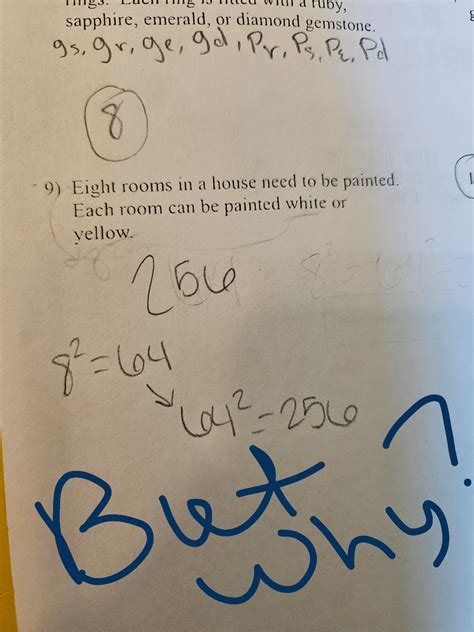 rings. Each ring is fitted with a ruby,
sapphire, emerald, or diamond gemstone.
gs, gr, ge, gd, Pr, Ps, PE, Pd
8
9) Eight rooms in a house need to be painted.
Each room can be painted white or
yellow.
256
8²=64
64²=256
But
why?